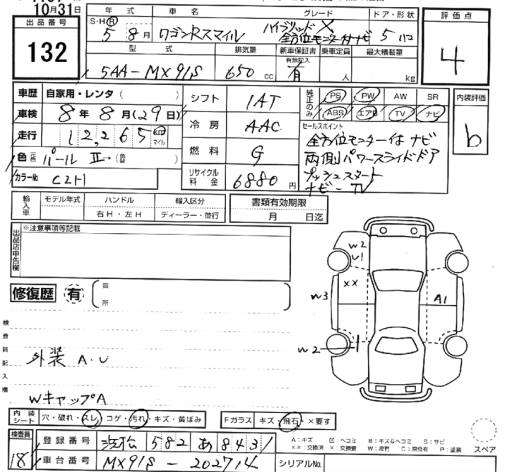 10月31日
出品番号
132
年式 車名 グレード ドア・形状
S・H・R 5年8月 ワゴンRスマイル ハイブリッドX 全方位モニター付ナビ 5ドア
型式 排気量 新車保証書 乗車定員 最大積載量
5AA-MX91S 650cc 有 人 kg
評価点
4
車歴 自家用・レンタ
車検 8年8月(29日)
走行 12,265 マイル
色 パールⅡ
カラーNo C2H
シフト IAT
冷房 AAC
燃料 G
リサイクル料金 6880円
純正のみ PS PW AW SR
ABS エアB TV ナビ
内装評価
b
セールスポイント
全方位モニター付ナビ
両側パワースライドドア
プッシュスタート
ナビー TV
輸入車 モデル年式 ハンドル 輸入区分
年 右H・左H ディーラー・並行
書類有効期限
月 日迄
出品店申告欄 ※注意事項等記載
修復歴 有
箇所
検査員記入欄
外装 A.U
WキャップA
W2
U1
XX
W3
A1
W2
内装シート 穴・破れ・スレ・コゲ・汚れ・キズ・黄ばみ
Fガラス キズ・飛石・×要す
検査員
18
登録番号 浜松 582 あ 8431
車台番号 MX91S-202714
シリアルNo.
A:キズ U:ヘコミ B:キズ&ヘコミ S:サビ
スペア